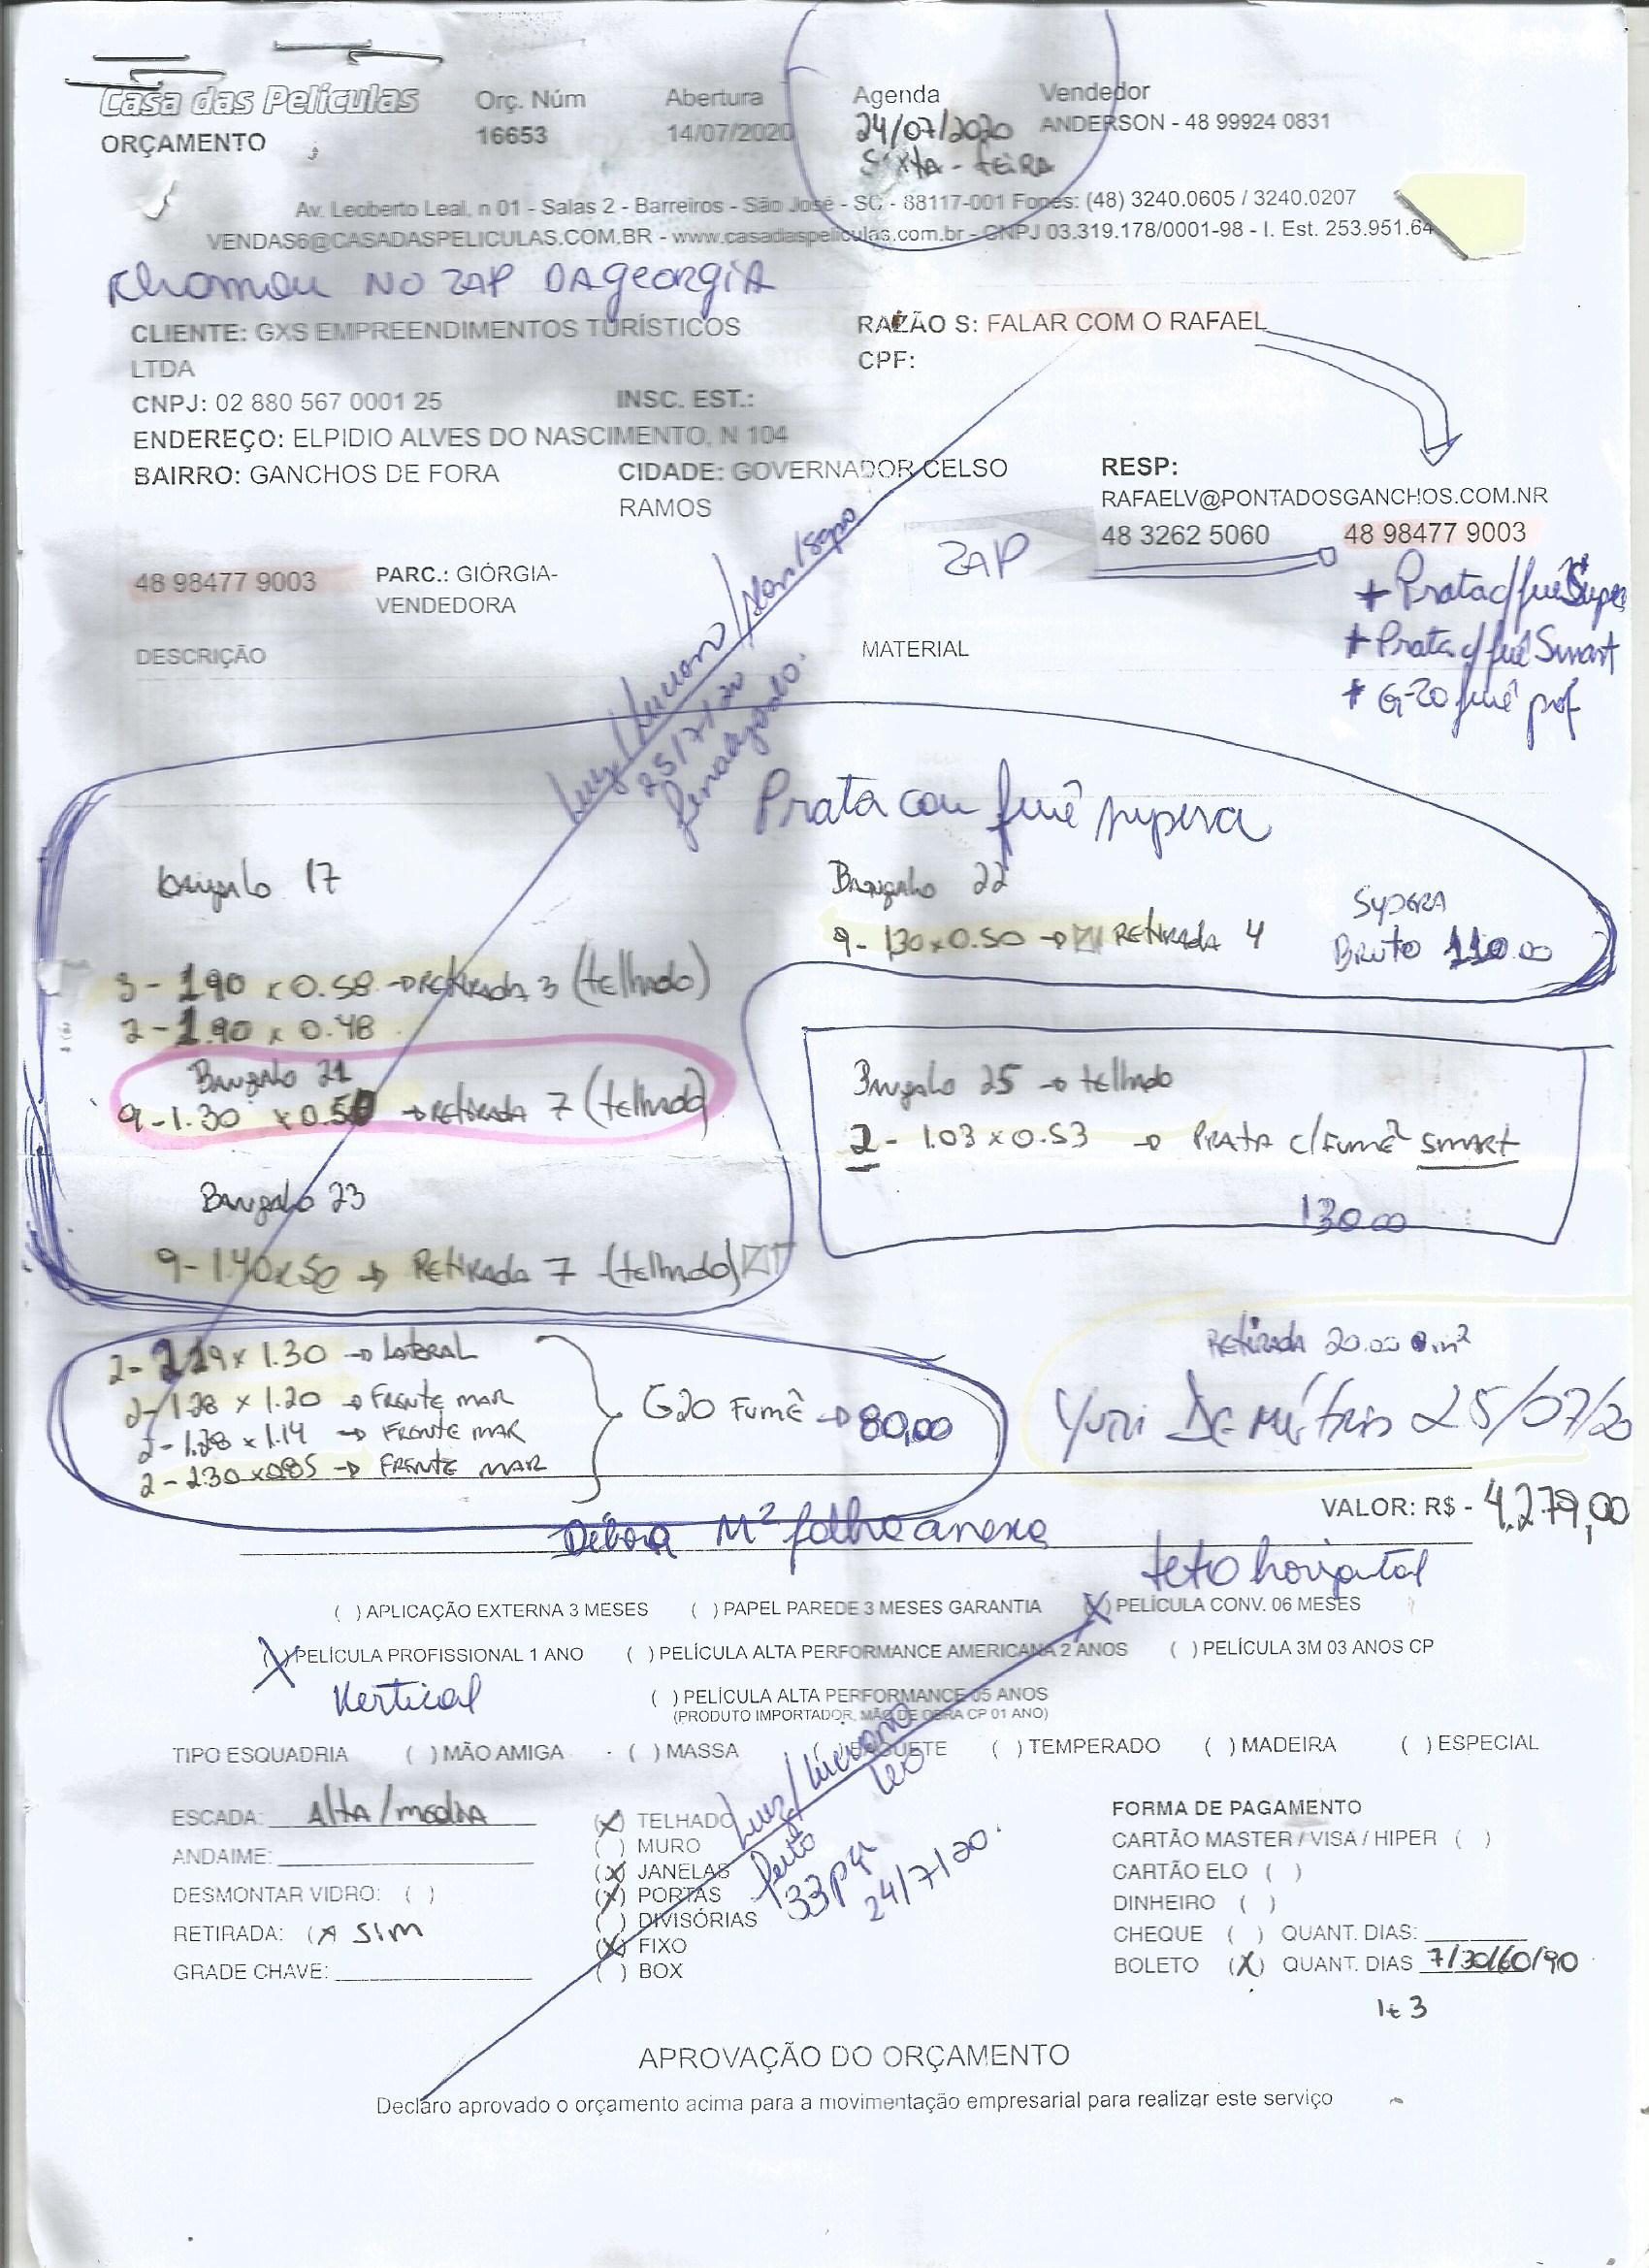 Casa das Películas
ORÇAMENTO
Orç. Núm
16653
Abertura
14/07/2020
Agenda
24/07/2020
SEXTA-FEIRA
Vendedor
ANDERSON - 48 99924 0831
Av. Leoberto Leal, n 01 - Salas 2 - Barreiros - São José - SC - 88117-001 Fones: (48) 3240.0605 / 3240.0207
VENDAS6@CASADASPELICULAS.COM.BR - www.casadaspeliculas.com.br - CNPJ 03.319.178/0001-98 - I. Est. 253.951.64
NO ZAP DA georgiA
CLIENTE: GXS EMPREENDIMENTOS TURÍSTICOS
LTDA
RAZÃO S: FALAR COM O RAFAEL
CPF:
CNPJ: 02 880 567 0001 25
INSC. EST.:
ENDEREÇO: ELPIDIO ALVES DO NASCIMENTO, N 104
BAIRRO: GANCHOS DE FORA
CIDADE: GOVERNADOR CELSO
RAMOS
RESP:
RAFAELV@PONTADOSGANCHOS.COM.NR
48 3262 5060
48 98477 9003
ZAP
48 98477 9003
PARC.: GIÓRGIA-
VENDEDORA
+ Prata c/ fumê Supe
+ Prata c/ fumê Smart
+ G-20 fumê prof
DESCRIÇÃO
MATERIAL
Luiz / Luciano /
25/7/20
finalizado.
Prata com fumê supera
Bangalo 17
3 - 1.90 x 0.58 → RETIRADA 3 (telhado)
2 - 1.90 x 0.48
Bangalo 21
9 - 1.30 x 0.50 → RETIRADA 7 (telhado)
Bangalo 23
9 - 1.40 x 50 → RETIRADA 7 (telhado)
Bangalo 22
9 - 130 x 0.50 → RETIRADA 4
SUPERA
BRUTO 110.00
Bangalo 25 → telhado
2 - 1.03 x 0.53 → PRATA C/FUMÊ SMART
130.00
2 - 2.29 x 1.30 → LATERAL
2 - 1.28 x 1.20 → FRENTE MAR
2 - 1.28 x 1.14 → FRENTE MAR
2 - 2.30 x 0.85 → FRENTE MAR
G20 FUMÊ → 80,00
RETIRADA 20.00 m²
Yuri Demétrio 25/07/20
VALOR: R$ - 4.279,00
Débora M² folha anexa
teto horizontal
( ) APLICAÇÃO EXTERNA 3 MESES ( ) PAPEL PAREDE 3 MESES GARANTIA (X) PELÍCULA CONV. 06 MESES
(X) PELÍCULA PROFISSIONAL 1 ANO ( ) PELÍCULA ALTA PERFORMANCE AMERICANA 2 ANOS ( ) PELÍCULA 3M 03 ANOS CP
Vertical
( ) PELÍCULA ALTA PERFORMANCE 05 ANOS
(PRODUTO IMPORTADOR, MÃO DE OBRA CP 01 ANO)
TIPO ESQUADRIA ( ) MÃO AMIGA ( ) MASSA ( ) BAGUETE ( ) TEMPERADO ( ) MADEIRA ( ) ESPECIAL
ESCADA: Alta/media
ANDAIME:
DESMONTAR VIDRO: ( )
RETIRADA: (X SIM
GRADE CHAVE:
(X) TELHADO
( ) MURO
(X) JANELAS
(X) PORTAS
( ) DIVISÓRIAS
(X) FIXO
( ) BOX
Luiz / Luciano
Leo
33 pç
24/7/20.
FORMA DE PAGAMENTO
CARTÃO MASTER / VISA / HIPER ( )
CARTÃO ELO ( )
DINHEIRO ( )
CHEQUE ( ) QUANT. DIAS:
BOLETO (X) QUANT. DIAS 7/30/60/90
1+3
APROVAÇÃO DO ORÇAMENTO
Declaro aprovado o orçamento acima para a movimentação empresarial para realizar este serviço